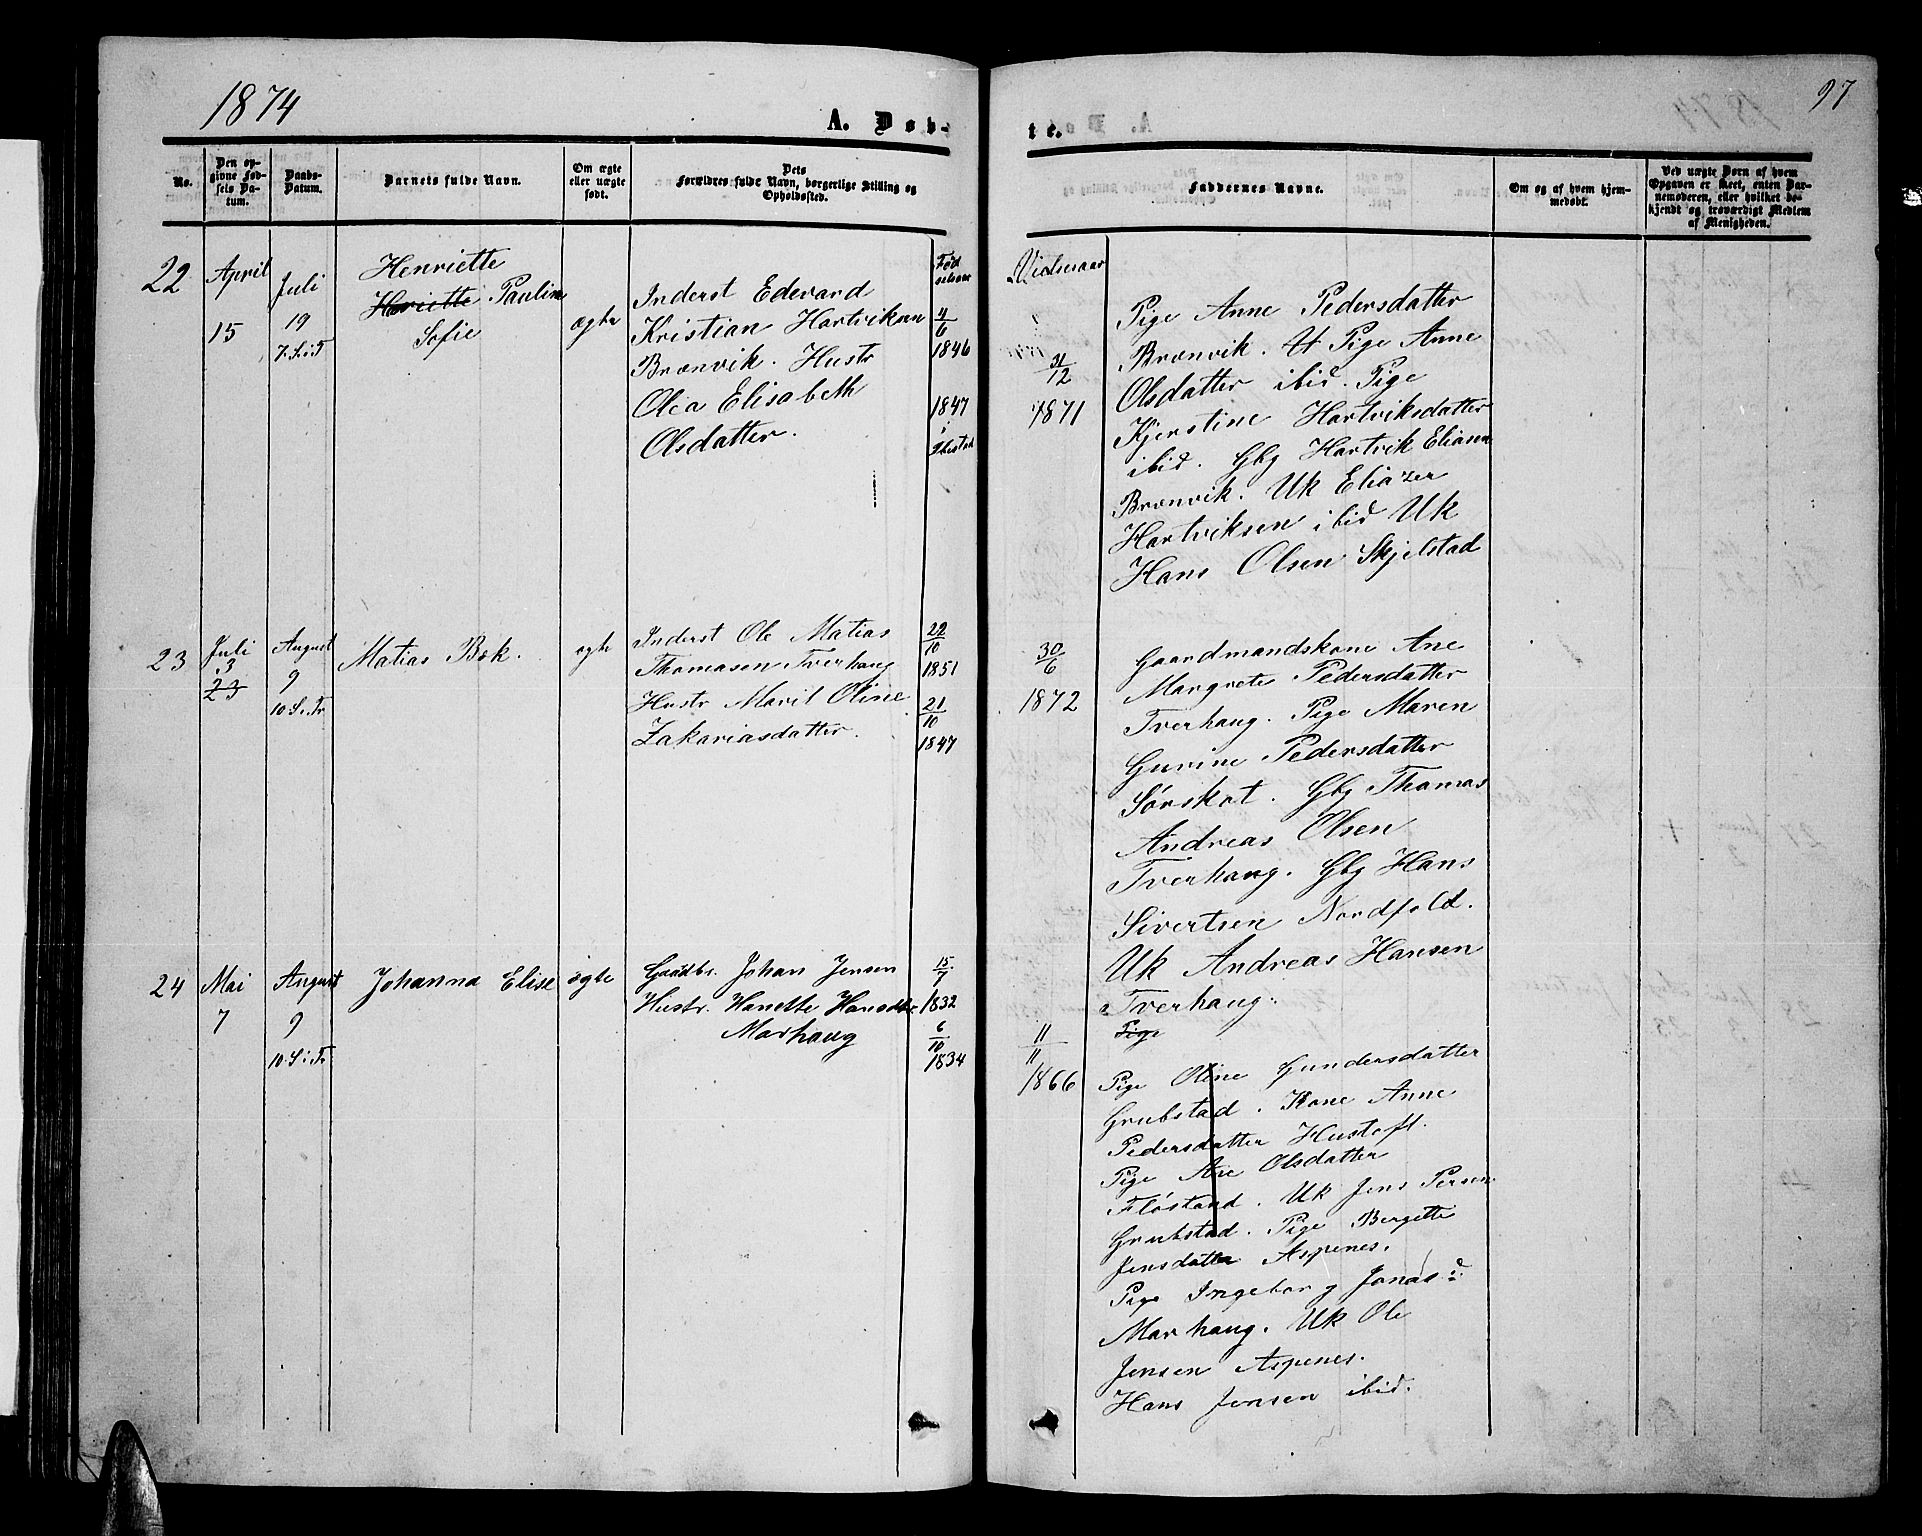 1874
A. Døb-
No.
Den op-
givne Fød-
sels Da-
tum.
Daabs-
Datum.
Barnets fulde Navn.
Om ægte
eller uægte
født.
Dets
Forældres fulde Navn, borgerlige Stilling og
Opholdssted.
22
April
15
Juli
19
7. S. i. T
Henriette
Henriette Pauline
Sofie
ægte
Inderst Edevard
Kristian Hartviksen
Brænvik. Hustr
Olea Elisabeth
Olsdatter.
Fød
selsaar
4/6
1846
1847
i
Ibestad
23
Juli
3
23
August
9
10. S. i. Tr
Matias Bæk.
ægte
Inderst Ole Matias
Thomasen Tverhaug
Hustr Marit Oline
Zakariasdatter.
22/10
1851
21/10
1847
24
Mai
7
August
9
10. S. i. Tr
Johanna Elise
ægte
Gaardbr. Johan Jensen
Hustr. Hanette Hansdtr
Marhaug
15/7
1832
6/10
1834
97
te.
Faddernes Navne.
Om og af hvem hjem-
medøbt.
Ved uægte Børn af hvem
Opgaven er skeet, enten Bar-
nemoderen, eller hvilket be-
kjendt og troværdigt Medlem
af Menigheden.
Vielsesaar
31/12
1871
Pige Anne Pedersdatter
Brænvik. Pige Anne
Olsdatter ibid. Pige
Kjerstine Hartviksdatter
ibid. Gbg Hartvik Eliasen
Brænvik. Uk Eliazer
Hartviksen ibid Uk
Hans Olsen Skjelstad
30/6
1872
Gaardmandskone Ane
Margrete Pedersdatter
Tverhaug. Pige Maren
Gurine Pedersdatter
Sørskot. Gbg Thomas
Andreas Olsen
Tverhaug. Gbg Hans
Sivertsen Nordfold.
Uk Andreas Hansen
Tverhaug.
11/11
1866
Pige
Pige Oline Gundersdatter
Grubstad. Kone Anne
Pedersdatter Hustoft.
Pige Ane Olsdatter
Fløstand. Uk Jens Persen
Grubstad. Pige Bergette
Jensdatter Aspenes.
Pige Ingeborg Jonasd
Marhaug. Uk Ole
Jensen Aspenes.
Hans Jensen ibid.